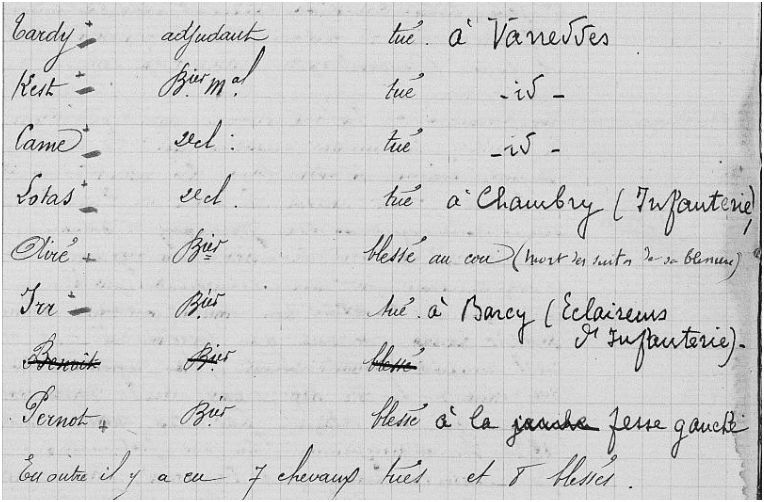 Tardy adjudant tué à Varreddes
Kest Bier Mal tué - id -
Came 2e cl : tué - id -
Lotas 2e cl. tué à Chambry (Infanterie)
Oliré Bier blessé au cou (mort des suites de sa blessure)
Irr Bier tué à Barcy (Eclaireurs
d'Infanterie).
Benoit Bier blessé
Pernot Bier blessé à la gauche fesse gauche
En outre il y a eu 7 chevaux tués et 8 blessés.